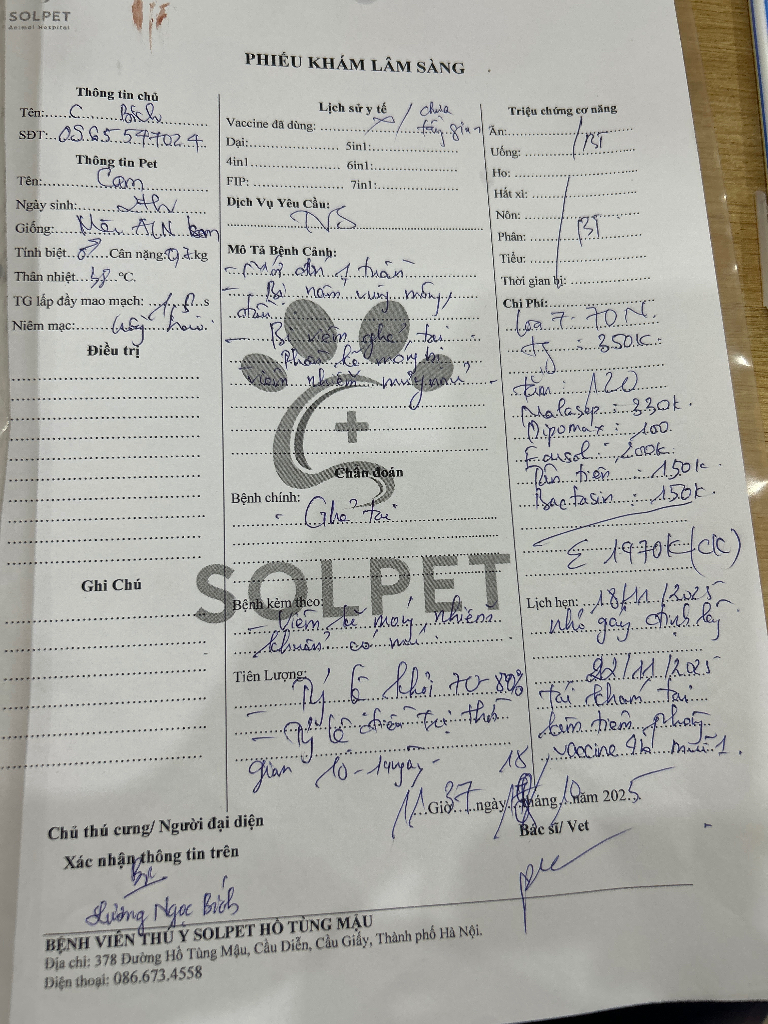 SOLPET
Animal Hospital
PHIẾU KHÁM LÂM SÀNG
Thông tin chủ
Tên: C Bích
SĐT: 0965597024
Thông tin Pet
Tên: Cam
Ngày sinh: 2th
Giống: Mèo ALN
Tính biệt ♂ Cân nặng: 0,7 kg
Thân nhiệt 38 °C.
TG lấp đầy mao mạch: 1,5 s
Niêm mạc: hồng
Điều trị
Ghi Chú
Lịch sử y tế
Vaccine đã dùng: chưa tẩy giun
Dại: 5in1:
4in1 6in1:
FIP: 7in1:
Dịch Vụ Yêu Cầu:
NS
Mô Tả Bệnh Cảnh:
- Mới đón 1 tuần
- Bị nấm vùng mõm,
đầu
- Bị viêm ghẻ tai
Phần kẽ móng bị
viêm nhiễm
Chẩn đoán
Bệnh chính:
- Ghẻ tai
Bệnh kèm theo:
- Viêm kẽ móng, nhiễm
khuẩn có
Tiên Lượng:
- Tỷ lệ khỏi 70-80%
- Tỷ lệ điều trị thời
gian 10-14 ngày
Triệu chứng cơ năng
Ăn: BT
Uống:
Ho:
Hắt xì:
Nôn:
Phân: BT
Tiểu:
Thời gian bị:
Chi Phí:
70N
: 350K
tắm: 120
Malasep: 330k.
Dipomax: 100
200k
150k
Bactasin: 150k.
Σ 1970K (CK)
Lịch hẹn: 18/11/2025
nhỏ gáy định kỳ
22/11/2025
tái khám tai
tiêm phòng
vaccine 4b mũi 1.
11 Giờ 37 ngày 18 tháng 10 năm 2025
Bác sĩ/ Vet
Chủ thú cưng/ Người đại diện
Xác nhận thông tin trên
Dương Ngọc Bích
BỆNH VIÊN THÚ Y SOLPET HỒ TÙNG MẬU
Địa chỉ: 378 Đường Hồ Tùng Mậu, Cầu Diễn, Cầu Giấy, Thành phố Hà Nội.
Điện thoại: 086.673.4558
SOLPET